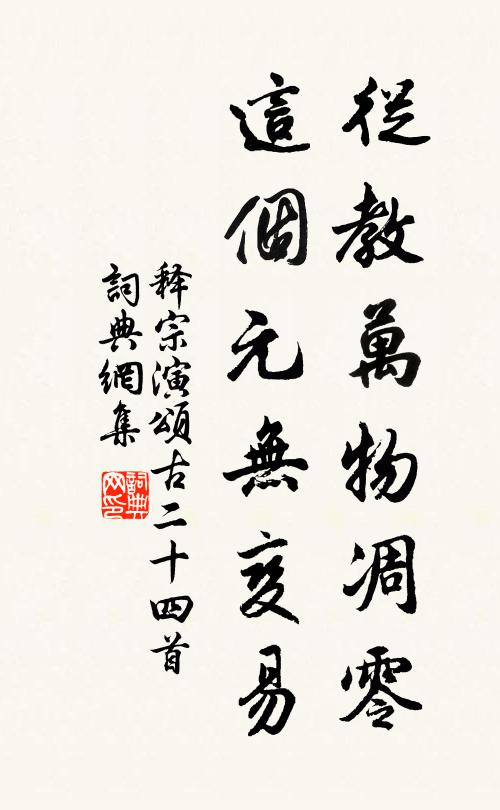 從教萬物凋零
這個元無変易
释宗演頌古二十四首
詞典網集
詞典网印